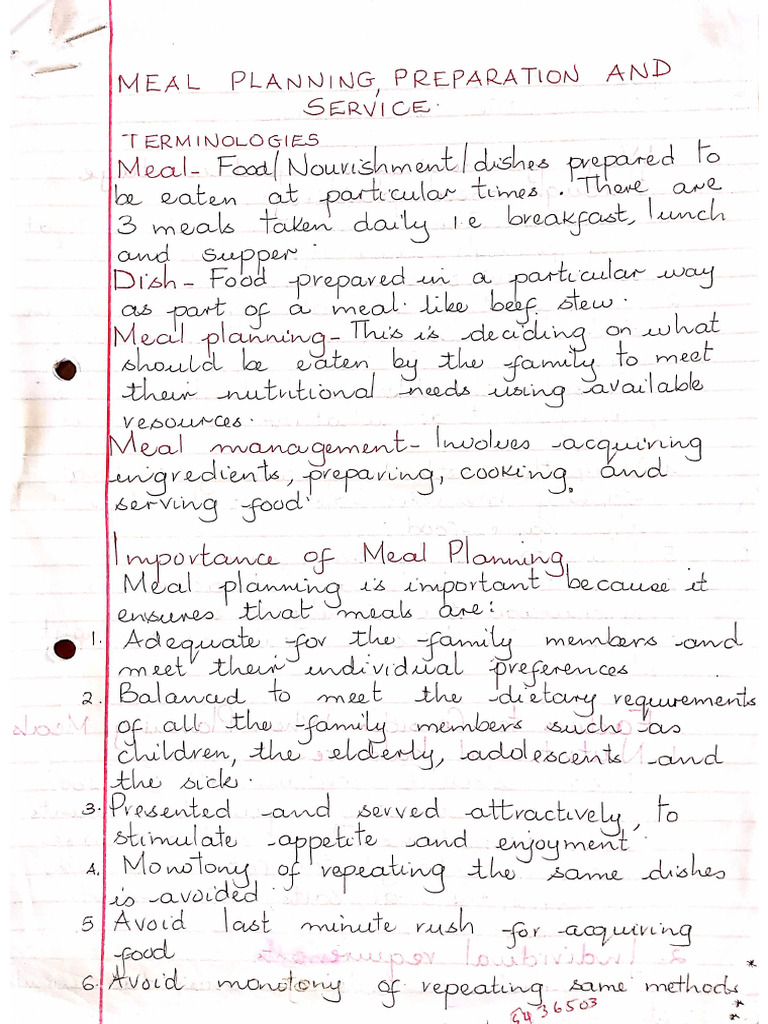 MEAL PLANNING, PREPARATION AND
SERVICE.
TERMINOLOGIES
Meal - Food/Nourishment/dishes prepared to
be eaten at particular times. There are
3 meals taken daily i.e breakfast, lunch
and supper.
Dish - Food prepared in a particular way
as part of a meal like beef stew.
Meal planning - This is deciding on what
should be eaten by the family to meet
their nutritional needs using available
resources.
Meal management - Involves acquiring
ingredients, preparing, cooking, and
serving food.
Importance of Meal Planning
Meal planning is important because it
ensures that meals are:
1. Adequate for the family members and
meet their individual preferences
2. Balanced to meet the dietary requirements
of all the family members such as
children, the elderly, adolescents and
the sick.
3. Presented and served attractively, to
stimulate appetite and enjoyment.
4. Monotony of repeating the same dishes
is avoided.
5 Avoid last minute rush for acquiring
food
6. Avoid monotony of repeating same methods
5436503